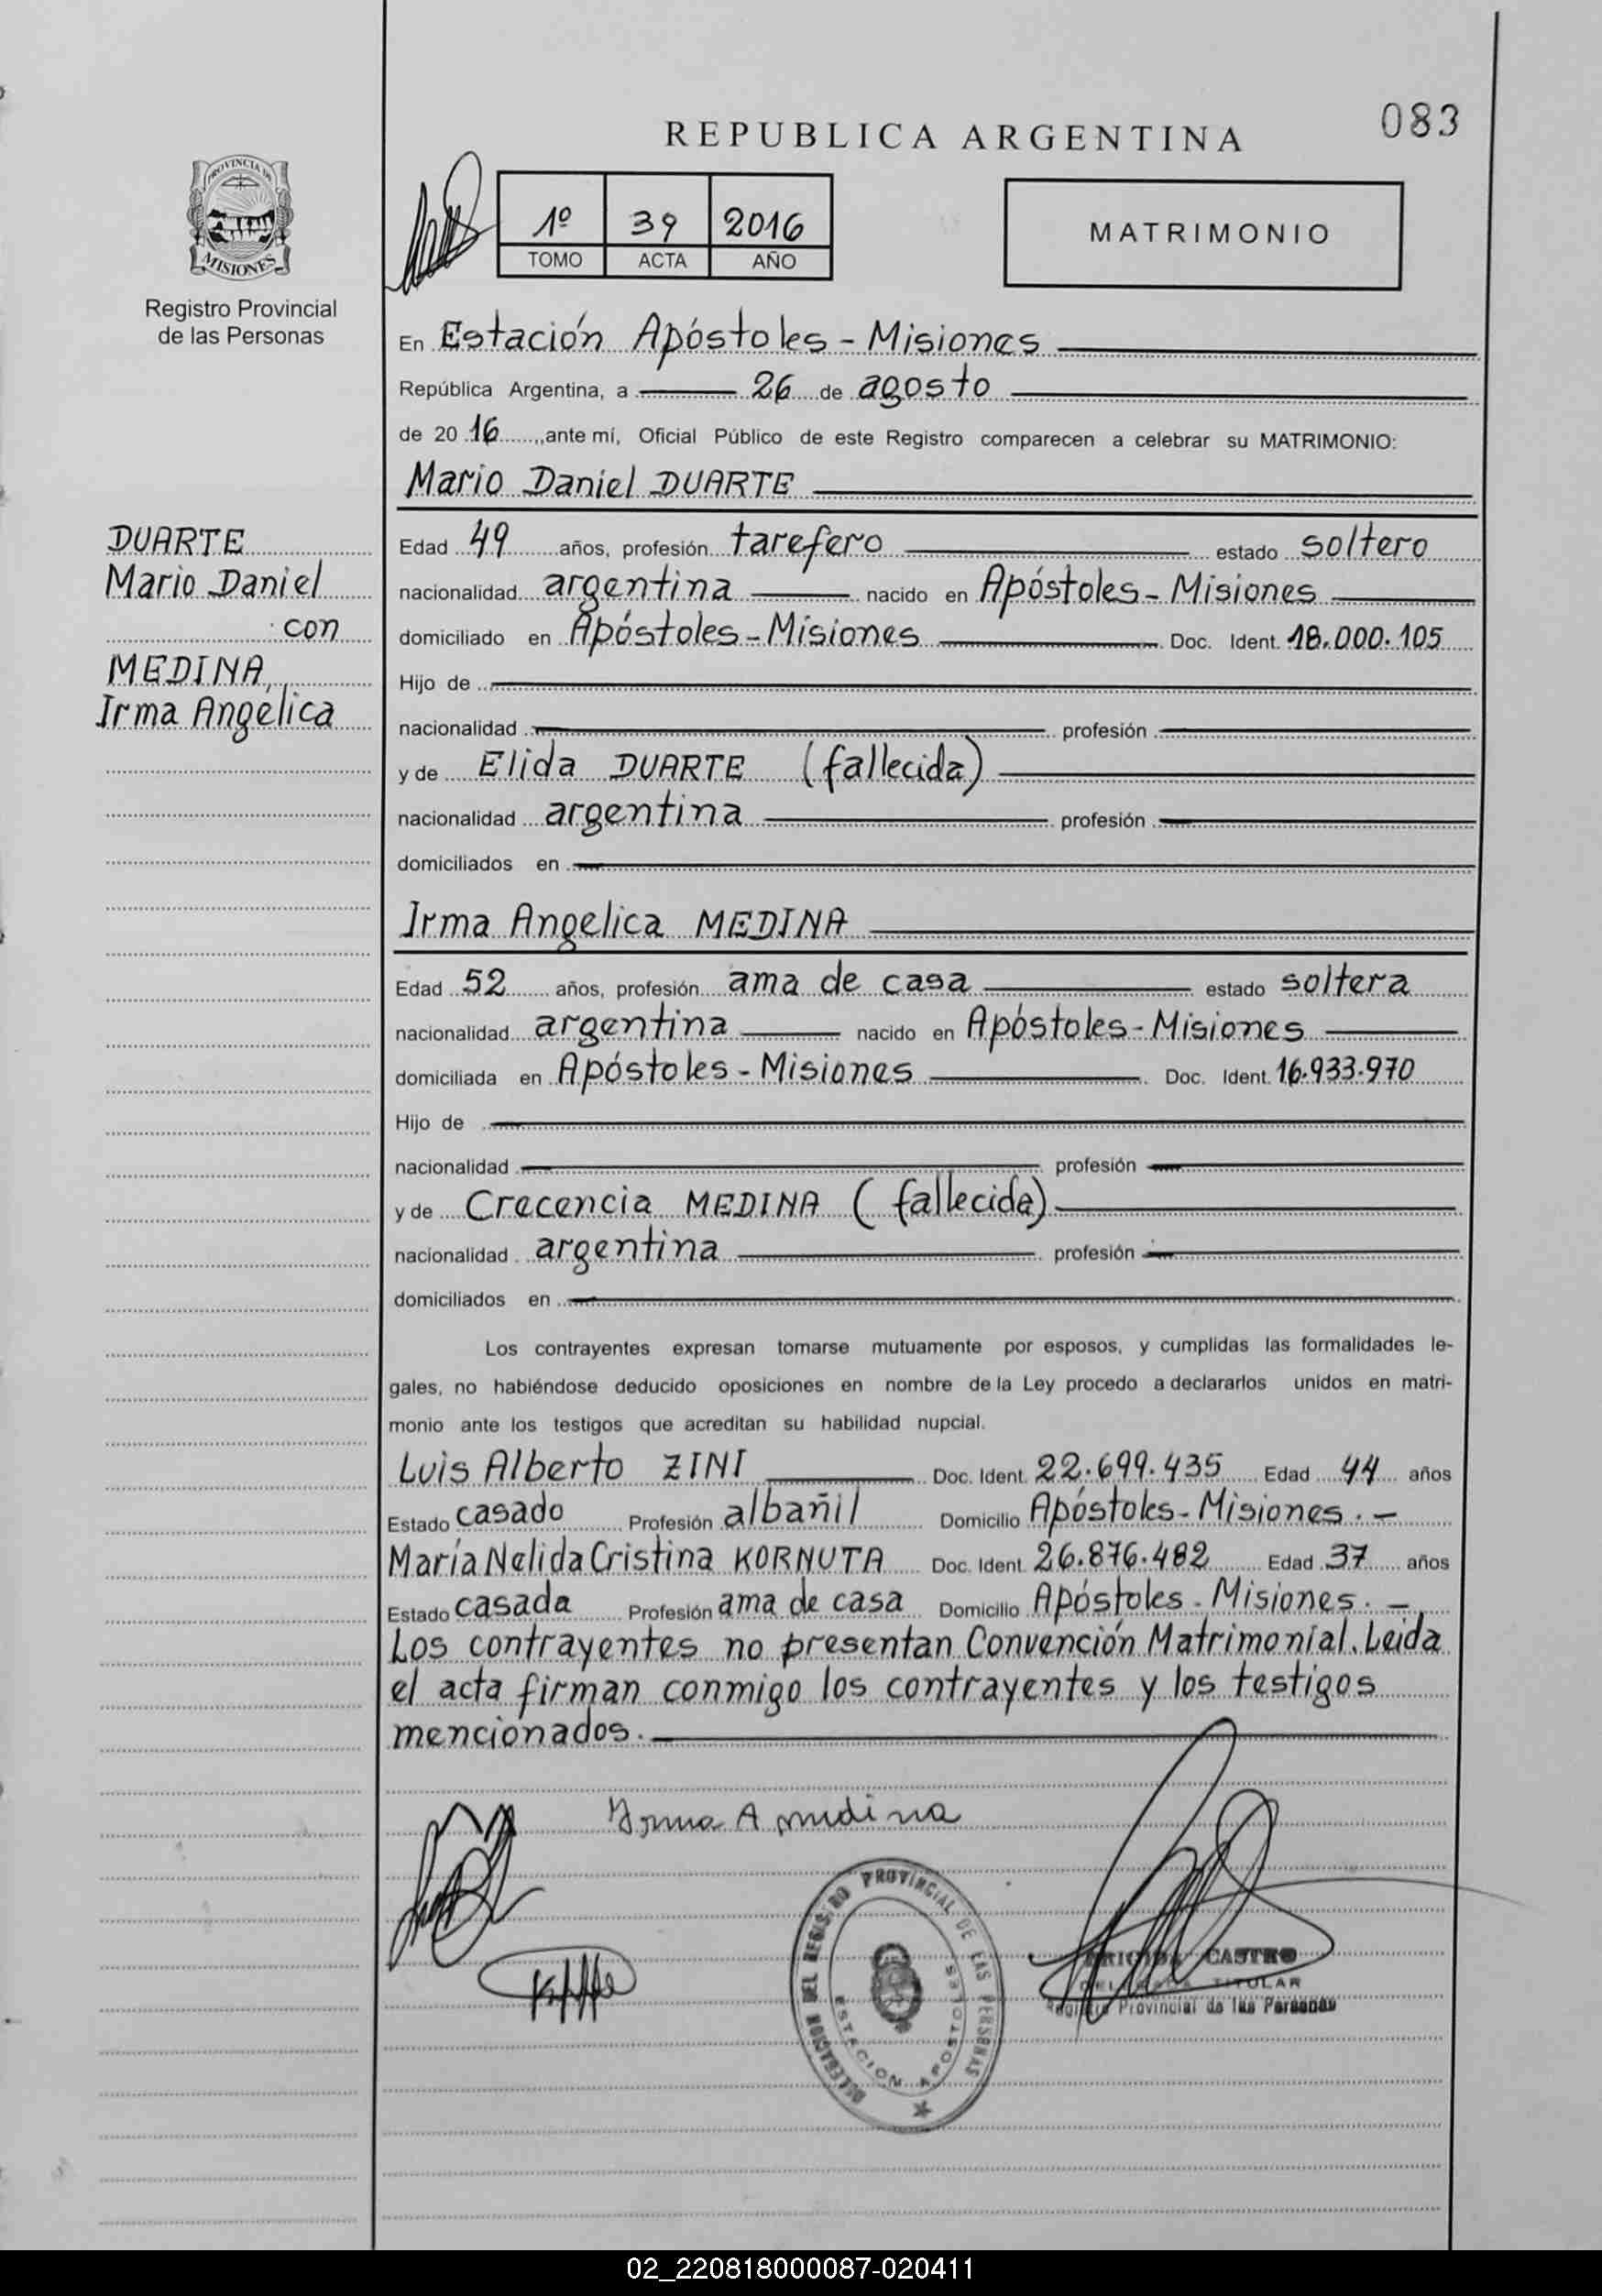 083
REPUBLICA ARGENTINA
PROVINCIA DE
MISIONES
Registro Provincial
de las Personas
1º 39 2016
TOMO ACTA AÑO
MATRIMONIO
En Estación Apóstoles - Misiones
República Argentina, a 26 de agosto
de 20 16 ante mí, Oficial Público de este Registro comparecen a celebrar su MATRIMONIO:
Mario Daniel DUARTE
DUARTE
Mario Daniel
con
MEDINA,
Irma Angelica
Edad 49 años, profesión tarefero estado soltero
nacionalidad argentina nacido en Apóstoles - Misiones
domiciliado en Apóstoles - Misiones Doc. Ident. 18.000.105
Hijo de
nacionalidad profesión
y de Elida DUARTE (fallecida)
nacionalidad argentina profesión
domiciliados en
Irma Angelica MEDINA
Edad 52 años, profesión ama de casa estado soltera
nacionalidad argentina nacido en Apóstoles - Misiones
domiciliada en Apóstoles - Misiones Doc. Ident. 16.933.970
Hijo de
nacionalidad profesión
y de Crecencia MEDINA (fallecida)
nacionalidad argentina profesión
domiciliados en
Los contrayentes expresan tomarse mutuamente por esposos, y cumplidas las formalidades le-
gales, no habiéndose deducido oposiciones en nombre de la Ley procedo a declararlos unidos en matri-
monio ante los testigos que acreditan su habilidad nupcial.
Luis Alberto ZINI Doc. Ident. 22.699.435 Edad 44 años
Estado casado Profesión albañil Domicilio Apóstoles - Misiones. -
María Nelida Cristina KORNUTA Doc. Ident. 26.876.482 Edad 37 años
Estado casada Profesión ama de casa Domicilio Apóstoles - Misiones. -
Los contrayentes no presentan Convención Matrimonial. Leida
el acta firman conmigo los contrayentes y los testigos
mencionados.
Irma A medina
DELEGACION DEL REGISTRO PROVINCIAL DE LAS PERSONAS
ESTACION APOSTOLES
CASTRO
TITULAR
Registro Provincial de las Personas
02_220818000087-020411